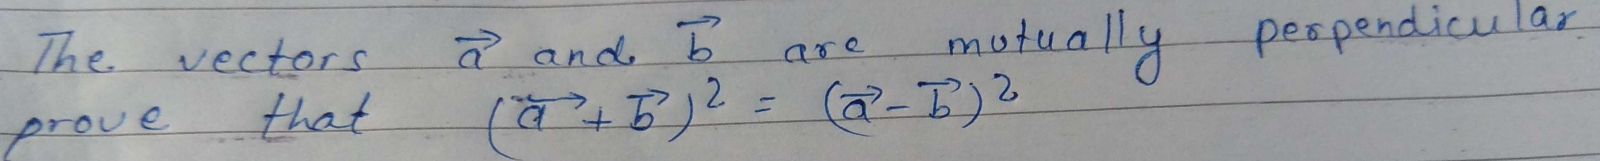 The vectors \vec{a} and \vec{b} are mutually perpendicular
prove that (\vec{a} + \vec{b})² = (\vec{a} - \vec{b})²